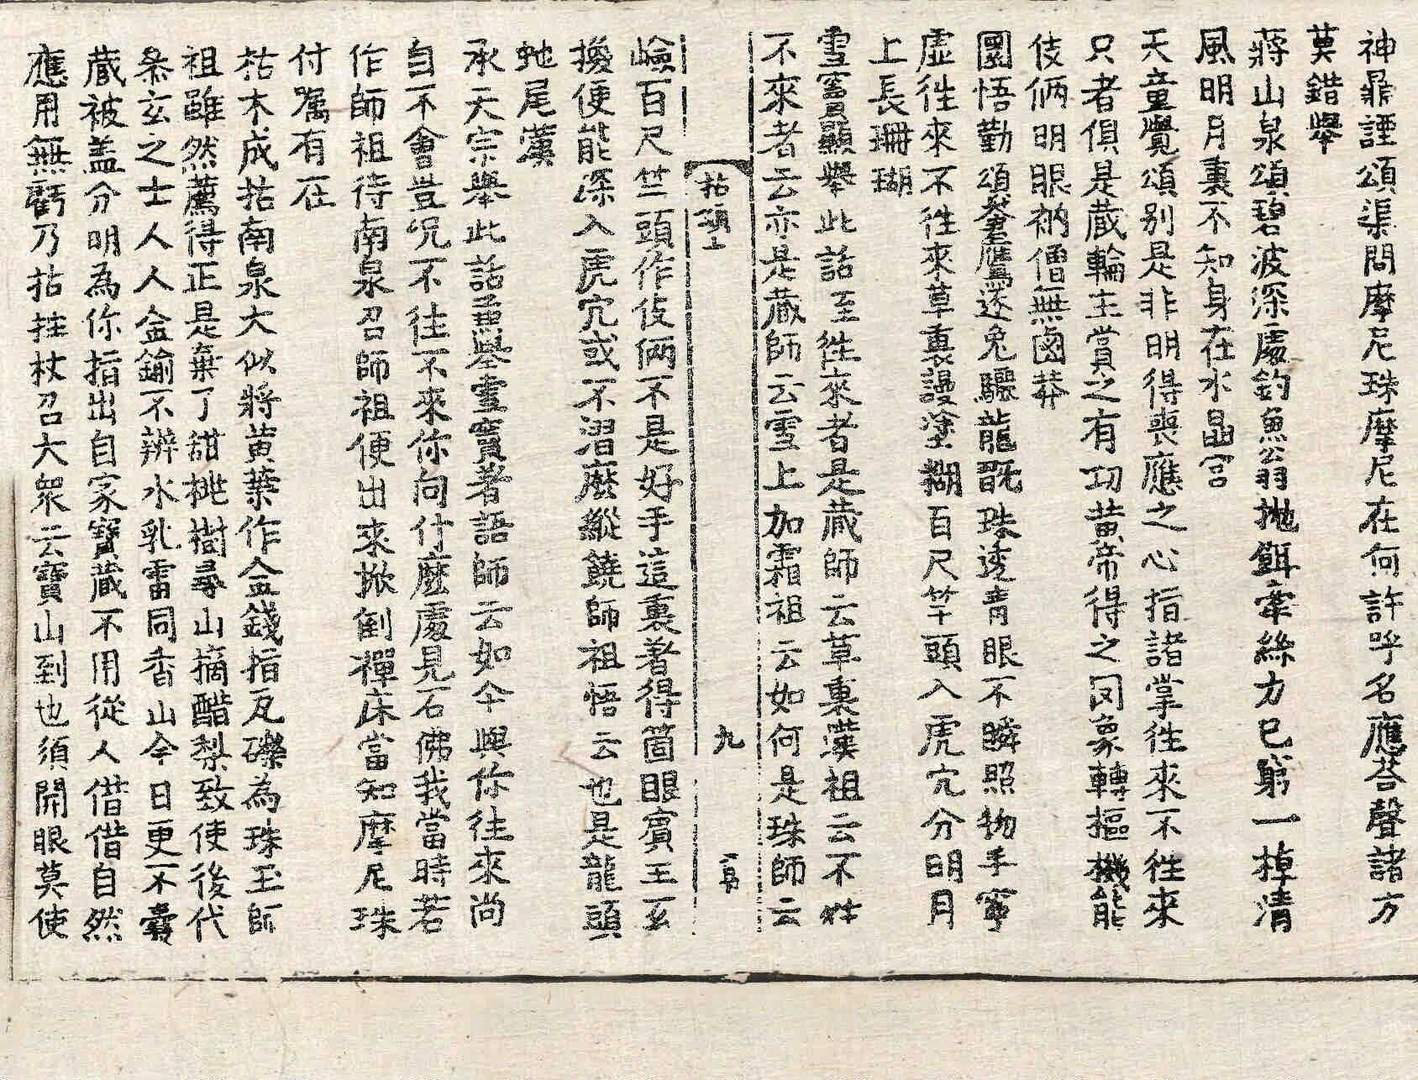 神鼎諲頌渠問摩尼珠摩尼在何許呼名應荅聲諸方
莫錯擧
蔣山泉頌碧波深處釣魚翁抛餌牽絲力已窮一棹清
風明月裏不知身在水晶宮
天童覺頌别是非明得喪應之心指諸掌徃來不徃來
只者俱是蔵輪王賞之有功黄帝得之罔象轉樞機能
伎倆明眼衲僧無鹵莽
圜悟勤頌羣鷹逐兔驪龍旣珠透青眼不瞬照物手寧
虛徃來不徃來草裏謾塗糊百尺竿頭入虎穴分明月
上長珊瑚
雪竇顯擧此話至徃來者是蔵師云草裏漢祖云不徃
不來者云亦是蔵師云雪上加霜祖云如何是珠師云
拈頌上 九
嶮百尺竿頭作伎倆不是好手這裏着得箇眼賓主互
換便能深入虎穴或不湼麽縱饒師祖悟云也是龍頭
虵尾漢
承天宗擧此話兼擧雪竇著語師云如今與你徃來尚
自不會豈况不往不來你向什麽處見石佛我當時若
作師祖待南泉召師祖便出來掀倒禪床當知摩尼珠
付嘱有在
枯木成拈南泉大似將黄葉作金錢指瓦礫為珠玉師
祖雖然薦得正是棄了甜桃樹尋山摘醋梨致使後代
叅玄之士人人金鍮不辨水乳雷同香山今日更不囊
蔵被盖分明為你指出自家寶蔵不用從人借借自然
應用無虧乃拈拄杖召大衆云寶山到也須開眼莫使